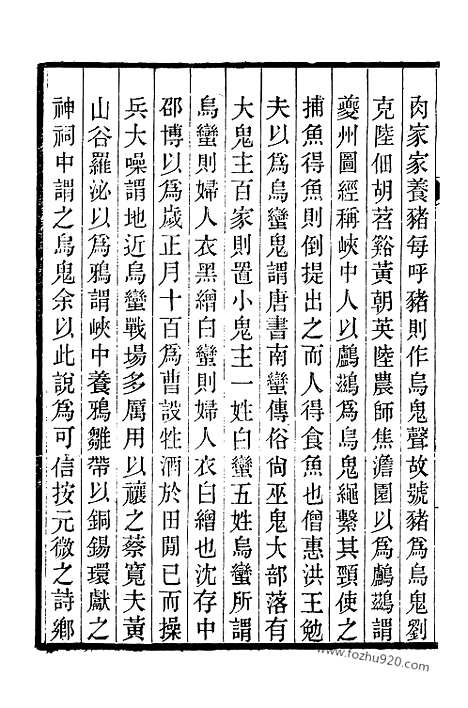 肉家家養豬每呼豬則作烏鬼聲故號豬爲烏鬼劉
克陸佃胡苕谿黃朝英陸農師焦澹園以爲鸕鷀謂
夔州圖經稱峽中人以鸕鷀爲烏鬼繩繫其頸使之
捕魚得魚則倒提出之而人得食魚也僧惠洪王勉
夫以爲烏蠻鬼謂唐書南蠻傳俗尙巫鬼大部落有
大鬼主百家則置小鬼主一姓白蠻五姓烏蠻所謂
烏蠻則婦人衣黑繒白蠻則婦人衣白繒也沈存中
邵博以爲歲正月十百爲曹設牲酒於田閒已而操
兵大噪謂地近烏蠻戰場多厲用以禳之蔡寬夫黃
山谷羅泌以爲鴉謂峽中養鴉雛帶以銅錫環獻之
神祠中謂之烏鬼余以此說爲可信按元微之詩鄉
www.fozhu920.com